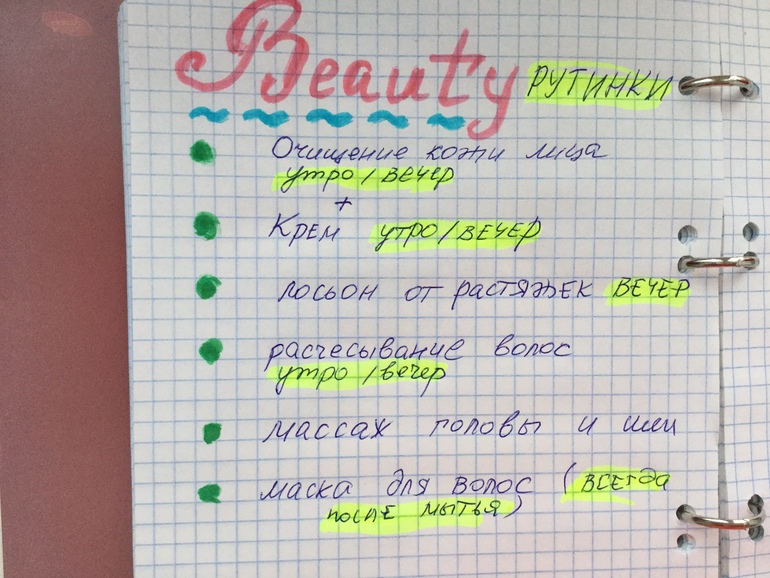 Beauty РУТИНКИ
Очищение кожи лица
утро / вечер
+
Крем утро / вечер
лосьон от растяжек вечер
расчесывание волос
утро / вечер
массах головы и шеи
маска для волос (всегда
после мытья)